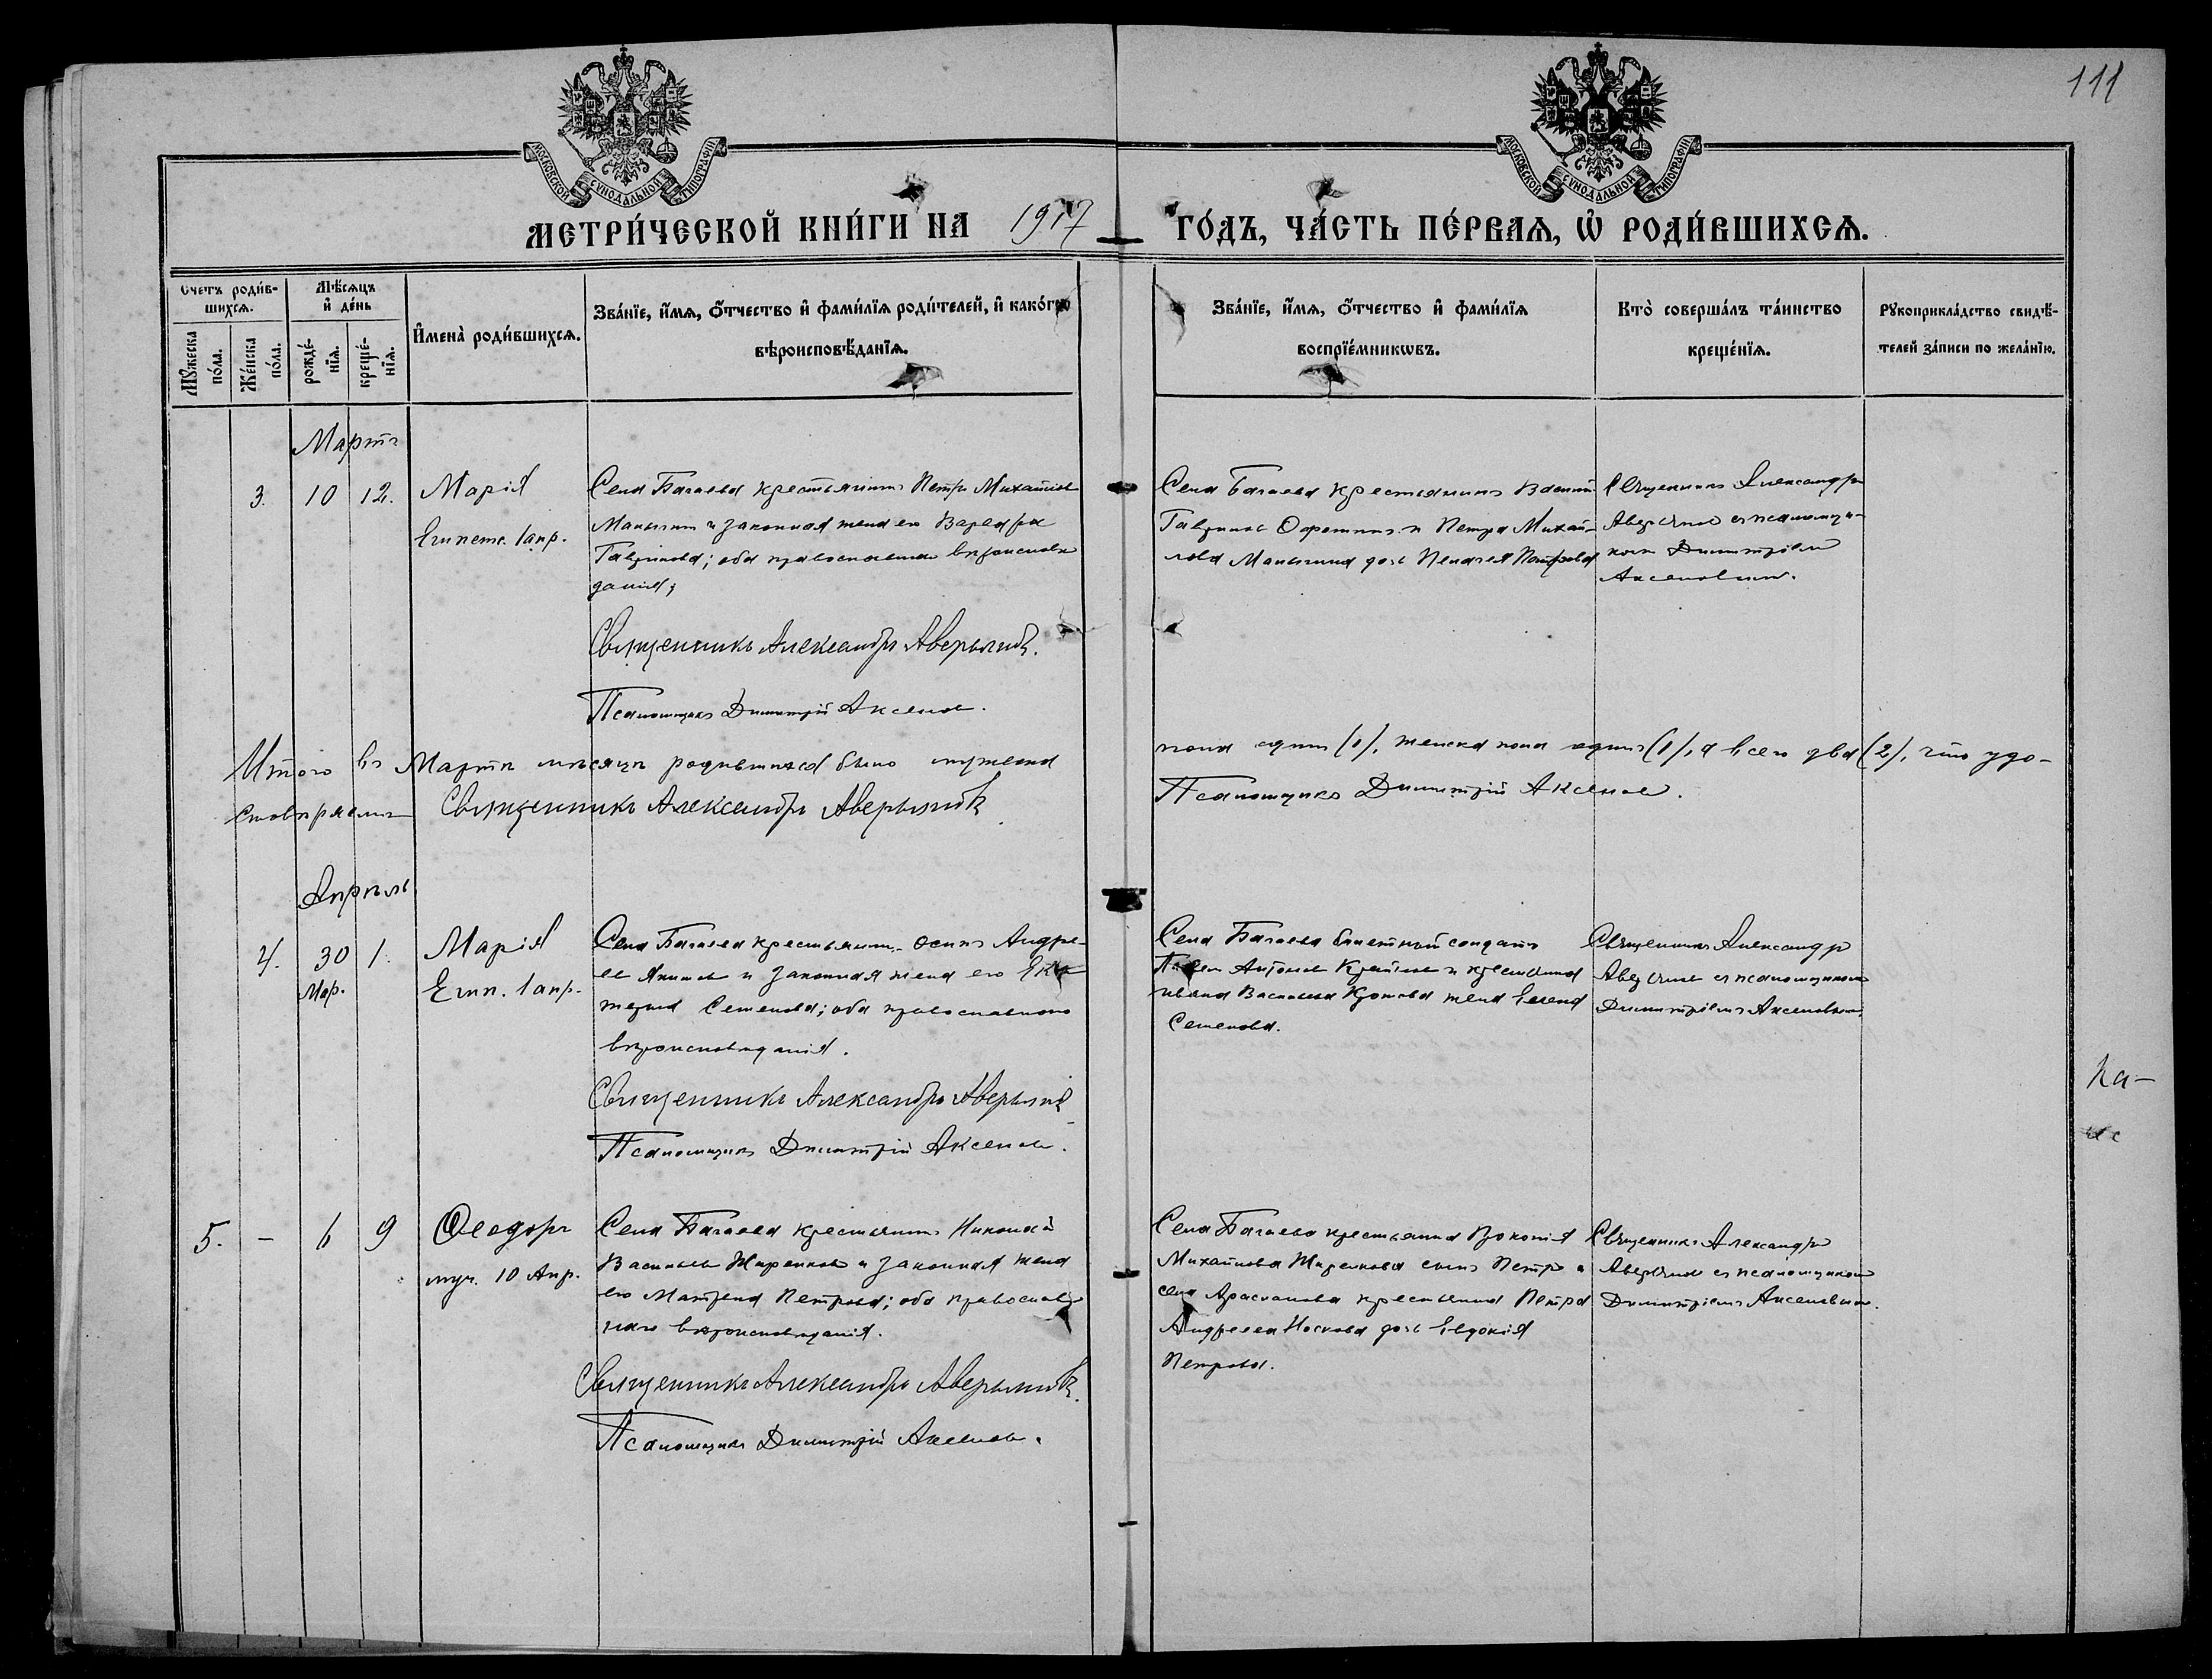 111
МОСКОВСКОЙ СѴНОДАЛЬНОЙ ТИПОГРАФІИ
МОСКОВСКОЙ СѴНОДАЛЬНОЙ ТИПОГРАФІИ
МЕТРИ́ЧЕСКОЙ КНИ́ГИ НА 1917 ГО́ДЪ, ЧА́СТЬ ПЕ́РВАЯ, Ѡ РОДИ́ВШИХСЯ.
Счетъ роди́в-
шихся.
Мѹжеска
по́ла.
Же́нска
по́ла.
Мѣ́сяцъ
и де́нь
рожде́-
нїя.
креще́-
нїя.
Имена̀ роди́вшихся.
Зва́нїе, и́мя, о́тчество и фами́лїя роди́телей, и како́гѡ
вѣроисповѣ́данїя.
Зва́нїе, и́мя, о́тчество и фами́лїя
воспрїе́мникѡвъ.
Кто̀ соверша́лъ та́инство
креще́нїя.
Рѹкоприкла́дство свидѣ́-
телей за́писи по жела́нїю.
Мартъ
3. 10 12.
Марія
Египетс. 1 апр.
Села Багаева крестьянинъ Петръ Михайловъ
Малыгинъ и законная жена его Варвара
Гаврилова; оба православнаго вѣроисповѣ
данія;
Священникъ Александръ Аверьяновъ.
Псаломщикъ Димитрій Аксеновъ.
Села Багаева крестьянинъ Василій
Гавриловъ и Петра Михай-
лова Малыгина дочь Пелагея Петрова
Священникъ Александръ
Аверьяновъ съ псаломщи-
комъ Димитріемъ
Аксеновымъ.
Итого въ Мартѣ мѣсяцѣ родившихся было мужеска
пола одинъ (1), женска пола одинъ (1), а всего два (2), что удо-
стовѣряемъ Священникъ Александръ Аверьяновъ
Псаломщикъ Димитрій Аксеновъ.
Апрѣль
4. 30 1.
Мар.
Марія
Егип. 1 апр.
Села Багаева крестьянинъ Осипъ Андре-
евъ Акимовъ и законная жена его Ека
терина Семенова; оба православнаго
вѣроисповѣданія.
Священникъ Александръ Аверьяновъ
Псаломщикъ Димитрій Аксеновъ.
Села Багаева билетный солдатъ
Павелъ Антоновъ и крестьянина
Ивана Васильева жена Елена
Семенова.
Священникъ Александръ
Аверьяновъ съ псаломщикомъ
Димитріемъ Аксеновымъ.
5. - 6 9
Ѳеодоръ
муч. 10 Апр.
Села Багаева крестьянинъ Николай
Васильевъ Ширенковъ и законная жена
его Матрена Петрова; оба православ
наго вѣроисповѣданія.
Священникъ Александръ Аверьяновъ.
Псаломщикъ Димитрій Аксеновъ.
Села Багаева крестьянина Прокопія
Михайлова Ширенкова сынъ Петръ и
села крестьянина Петра
Андреева Носкова дочь Евдокія
Петрова.
Священникъ Александръ
Аверьяновъ съ псаломщикомъ
Димитріемъ Аксеновымъ.